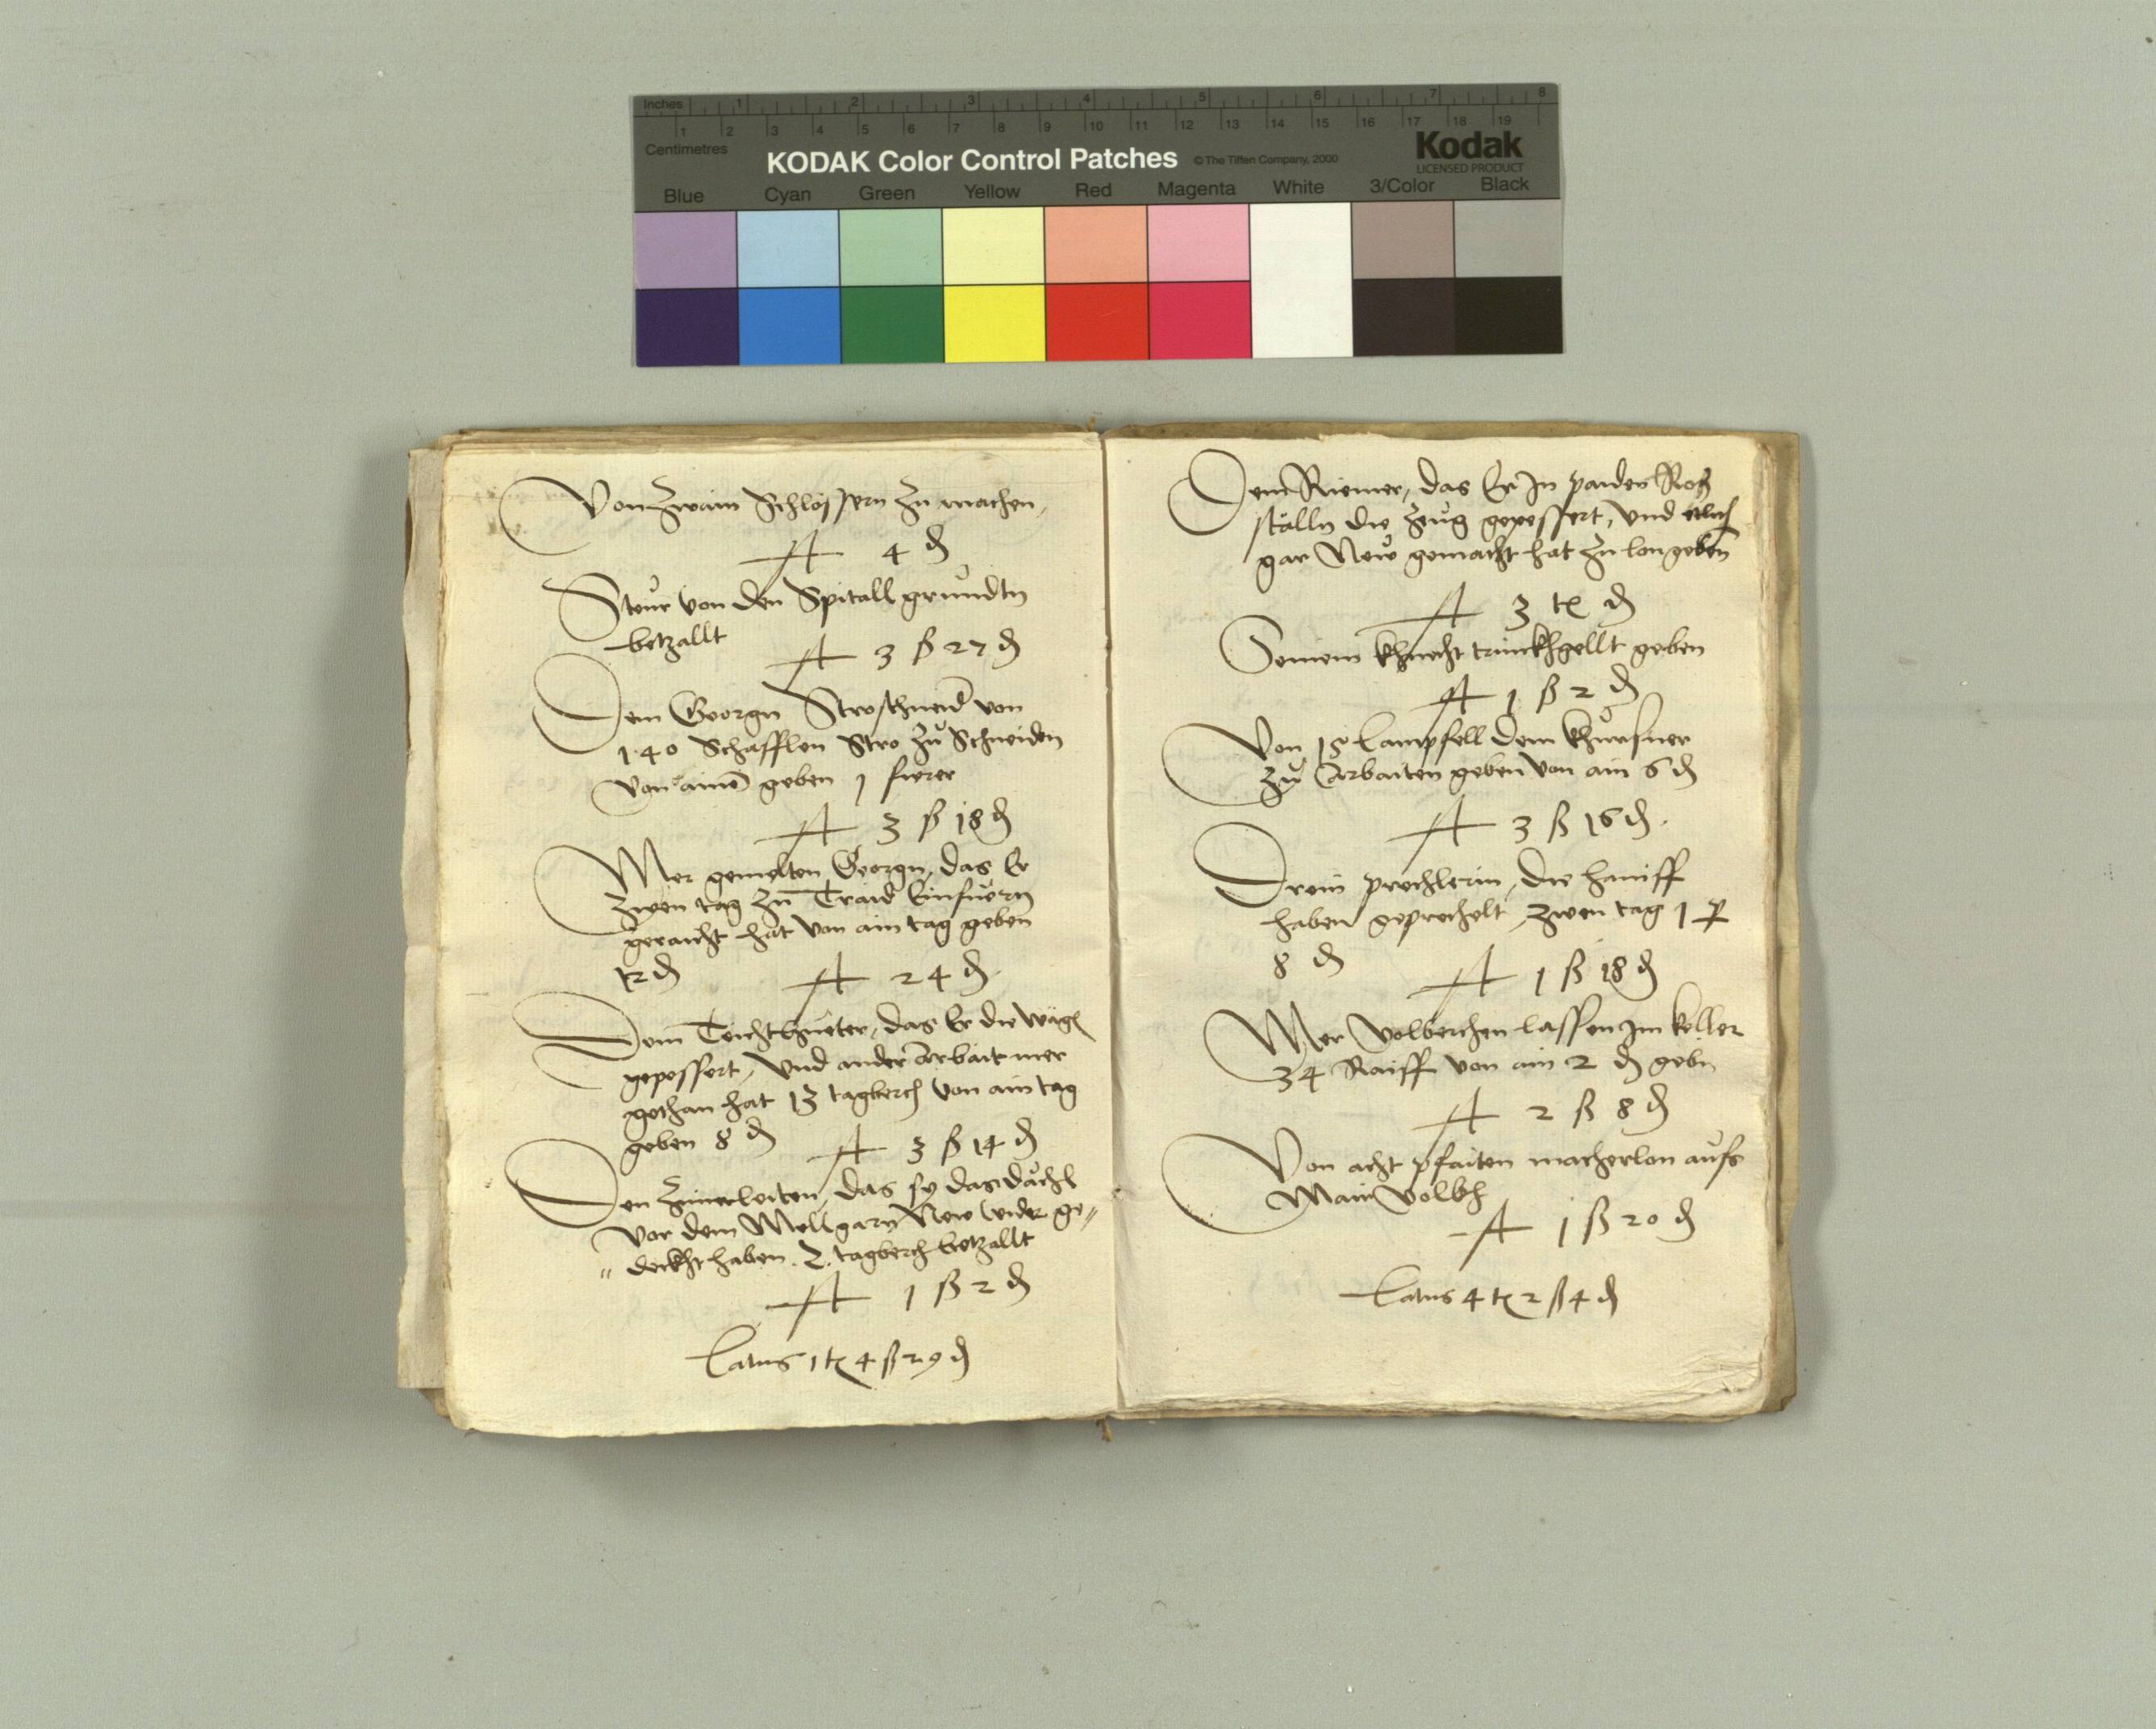 Inches 1 2 3 4 5 6 7 8
1 2 3 4 5 6 7 8 9 10 11 12 13 14 15 16 17 18 19
Centimetres
KODAK Color Control Patches © The Tiffen Company, 2000 Kodak
LICENSED PRODUCT
Blue Cyan Green Yellow Red Magenta White 3/Color Black
Von Zwain Schlössern zu machen,
4 ₰
Steur von den Spitall grundtn
betzallt
3 ß 27 ₰
Dem Georgn Stroschneid von
140 Schäfflen Stro zu Schneiden
von aim geben 1 fierer
3 ß 18 ₰
Mer gemelten Georgn, das Er
zwen tag zu Traid Einfuern
geraicht hat von ain tag geben
12 ₰ 24 ₰
Dem Teichthueter, das Er die wägl
gepessert, Und ander Arbait mer
gethan hat 13 tagberch von ain tag
geben 8 ₰ 3 ß 14 ₰
Den Zimerleiten, das sy das dächl
vor dem New wider ge„
„deckht haben. 2. tagberch betzallt
1 ß 2 ₰
Latus 1 ℔ 4 ß 29 ₰
Dem Riemer, das Er In paiden Roß
ställn die Zeug gepessert, und etlich
gar New gemacht hat zu lon geben
3 ℔ ₰
Seinem khnecht trinckhgellt geben
1 ß 2 ₰
Von 18 Lampfell dem khürsner
zu Arbaiten geben von ain 6 ₰
3 ß 16 ₰.
Drein prechlerin, die haniff
haben geprechelt, zwen tag 1 per
8 ₰ 1 ß 18 ₰
Mer lassen Im keller
34 Raiff von ain 2 ₰ gebn
2 ß 8 ₰
Von acht pfaiten macherlon aufs
Mair volkh
1 ß 20 ₰
Latus 4 ℔ 2 ß 4 ₰